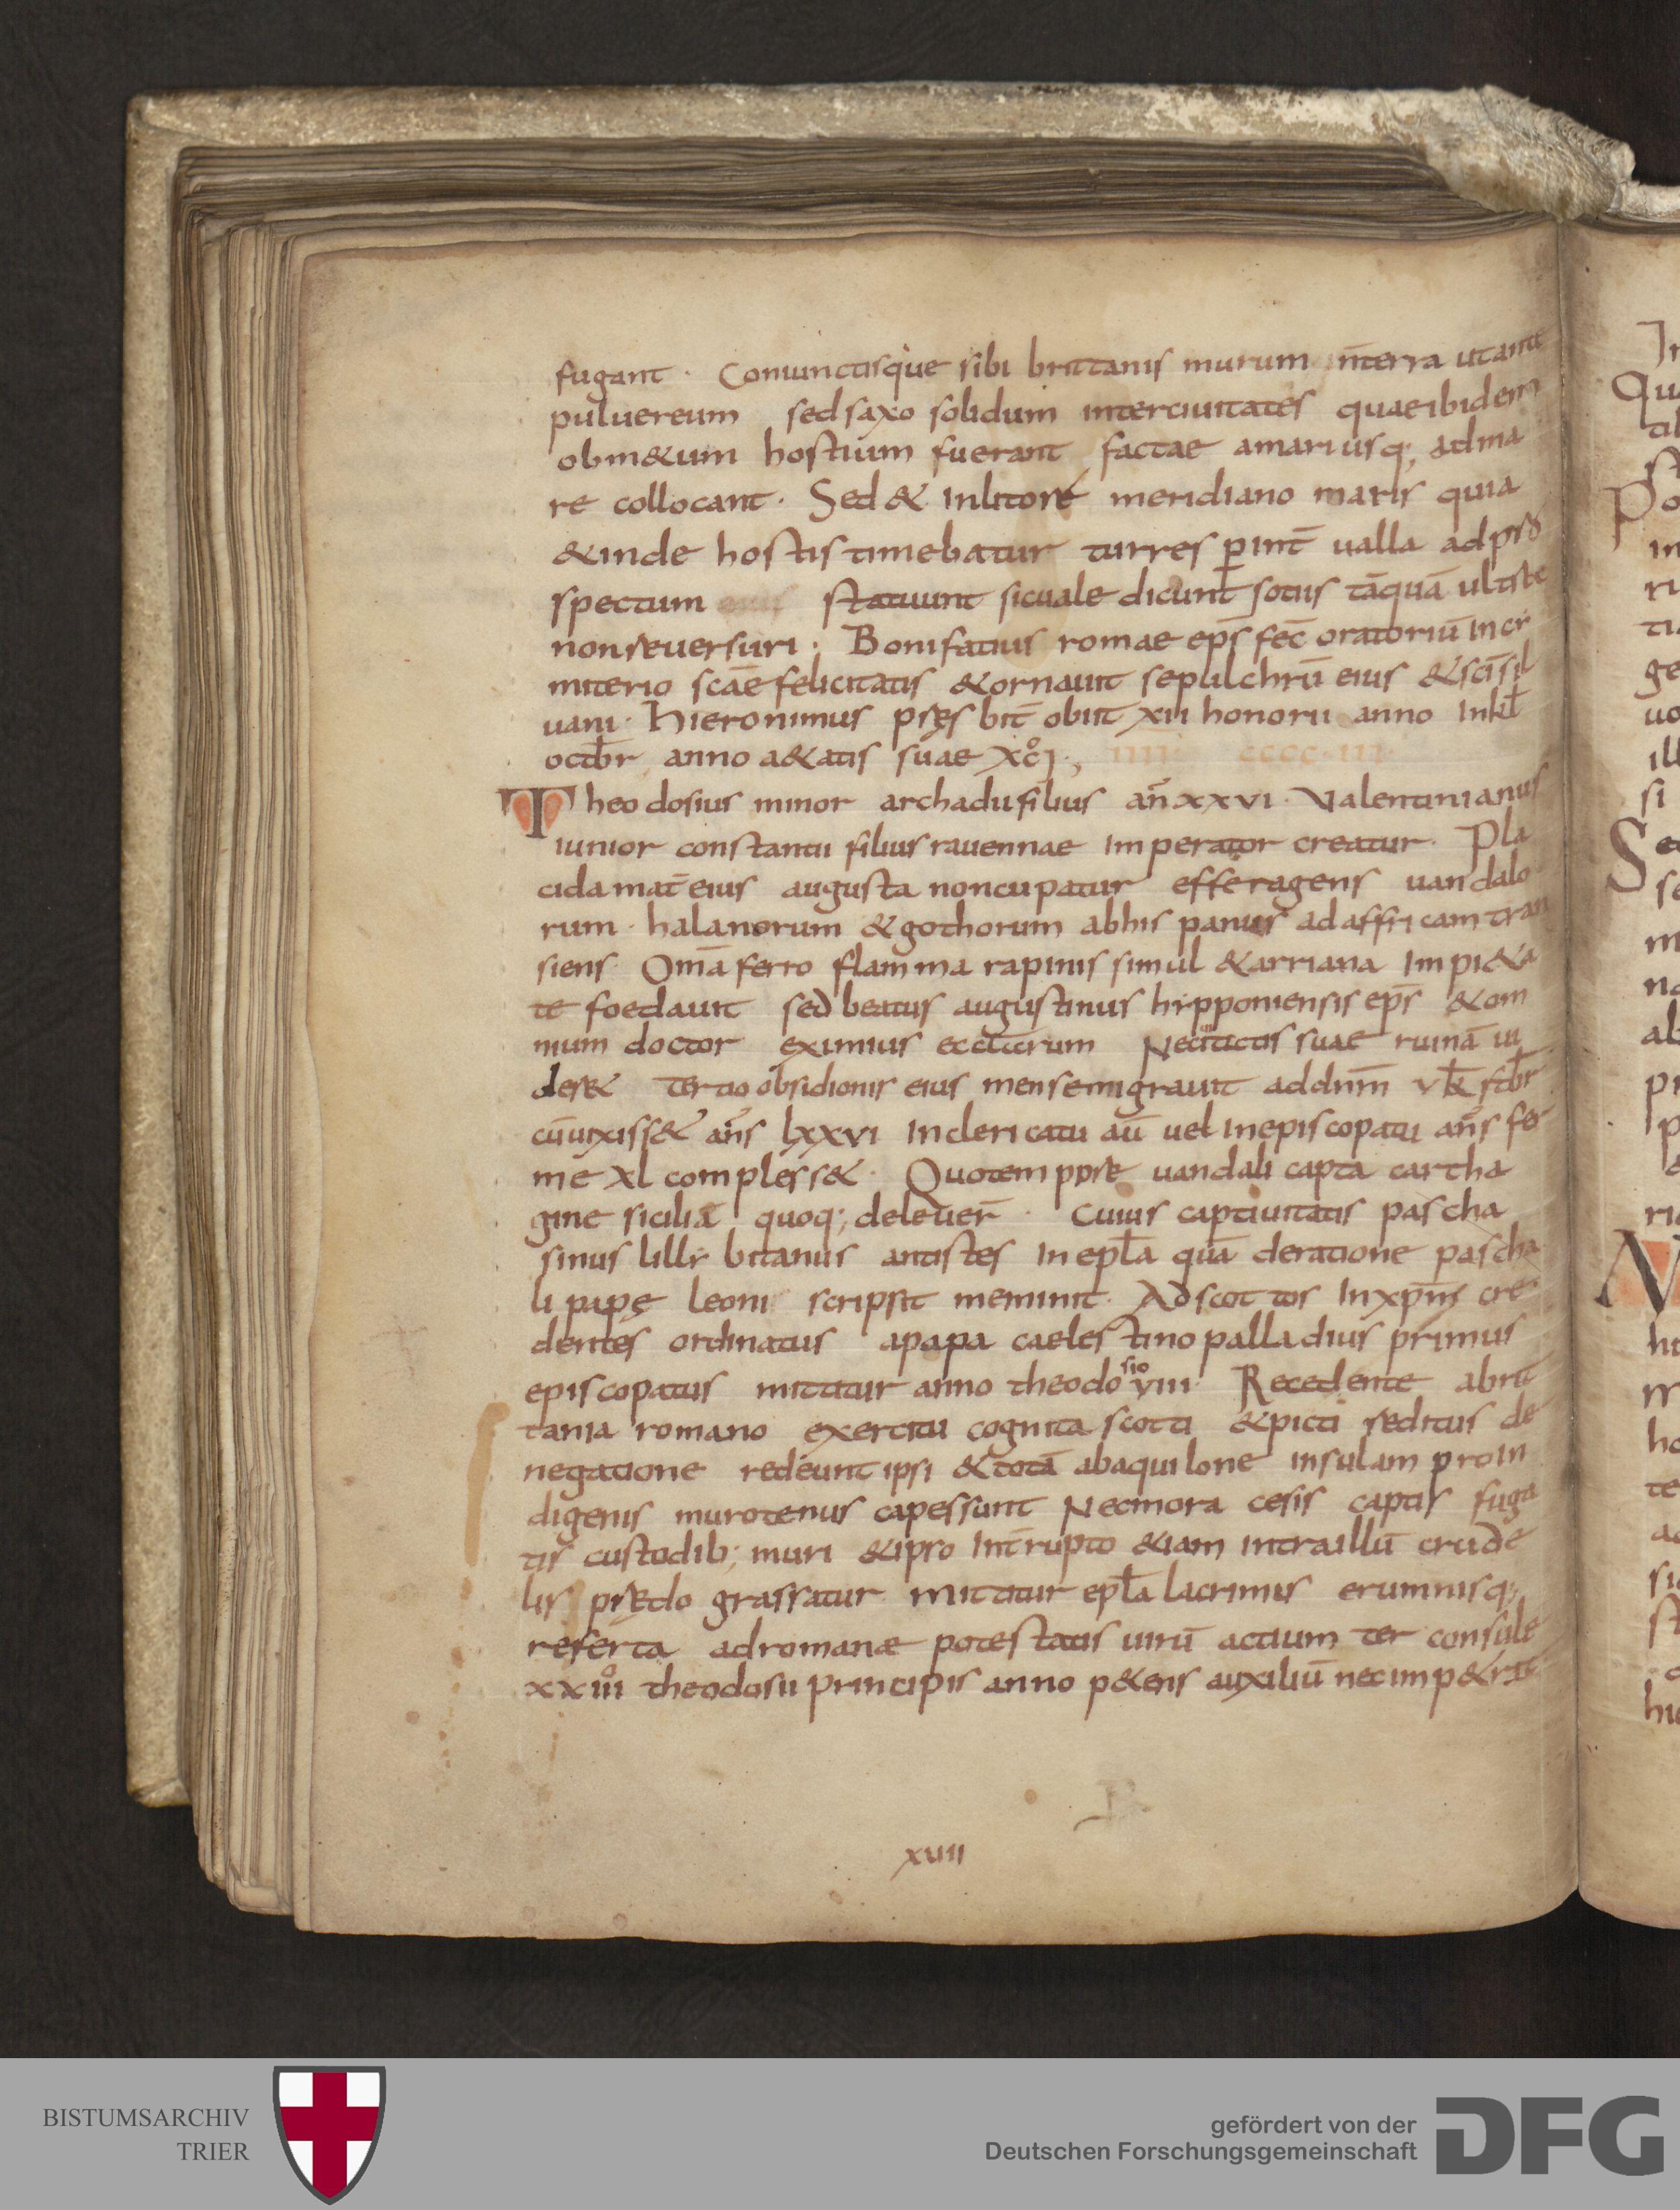 fugant · Coniunctisque sibi brittanis murum interra ut ante
puluereum sed saxo solidum inter ciuitates quae ibidem
ob m&um hostium fuerant factae a mari usq; ad ma
re collocant · Sed & in litore meridiano maris quia
& inde hostis timebatur turres p int̄ ualla ad pro
spectum eius statuunt sic uale dicunt sotiis tāquā ultste
non reuersuri ; Bonifatius romae ep̄s fec̄ oratoriū in ci
miterio scāe felicitatis & ornauit sepulchrū eius & sc̄i sil
uani · Hieronimus prȩsbit̄ obiit xii honorii anno in kł
octƀr anno a&atis suae xc̊i ; IIII· CCCC·III·
Theodosius minor archadii filius an̄ xxvi · Valentinianus
iunior constantii filius rauennae imperator creatur · Pla
cida mat̄ eius augusta noncupatur effera gens uandalo
rum · halanorum & gothorum ab hispaniis ad affricam tran
siens Om̄a ferro flamma rapinis simul & arriana impi&a
te foedauit sed beatus augustinus hipponiensis ep̄s & om
nium doctor eximius ecclarum Ne ciuitatis suae ruinā ui
der& tertio obsidionis eius mense migrauit ad dnm̄ v k̄ sbr̄
cū uixiss& an̄s lxxvi in clericatu aū uel in episcopatu an̄s fer
me xl compless& · Quo tempore uandali capta cartha
gine siciliā quoq; deleuer̄ · Cuius captiuitatis pascha
sinus lillybitanus antistes in epła quā de ratione pascha
li papȩ leoni scripsit meminit · Ad scottos in xp̄m cre
dentes ordinatus a papa caelestino palladius primus
episcopatus mittitur anno theodosio viii Recedente a brit
tania romano exercitu cognita scotti & picti reditus de
negatione redeunt ipsi & totā ab aquilone insulam pro in
digenis muro tenus capessunt Nec mora cesis captis fuga
tis custodib; muri & ipso int̄rupto &iam intra illū crude
lis prȩdo grassatur mittitur epła lacrimis erumnisq;
referta ad romanæ potestatis uirū actium ter consule
xxiii̊ theodosii principis anno p&ens auxiliū nec imp&rat
xviii
In
Qua
Po
in
ri
ge
uo
ill
si
Se
m
na
ab
pr
N
BISTUMSARCHIV
TRIER
gefördert von der
Deutschen Forschungsgemeinschaft
DFG